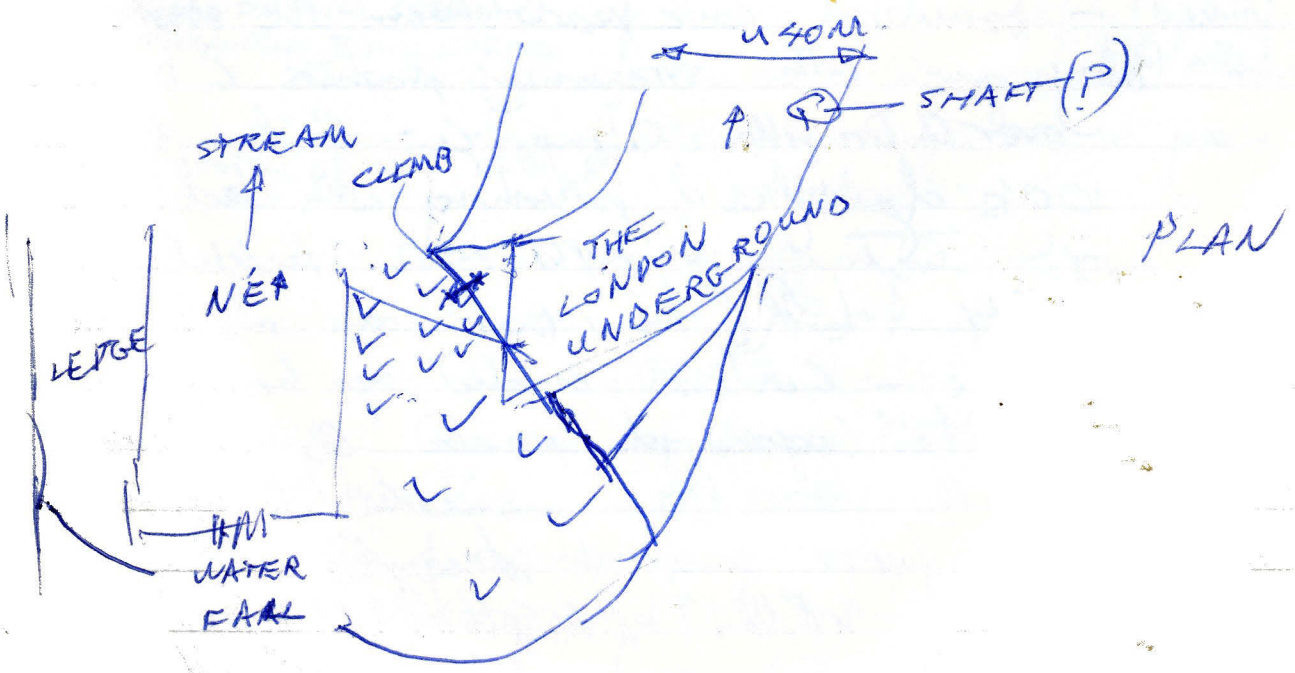 40M
SHAFT (P)
STREAM
CLIMB
THE
LONDON
UNDERGROUND
PLAN
LEDGE
WATER